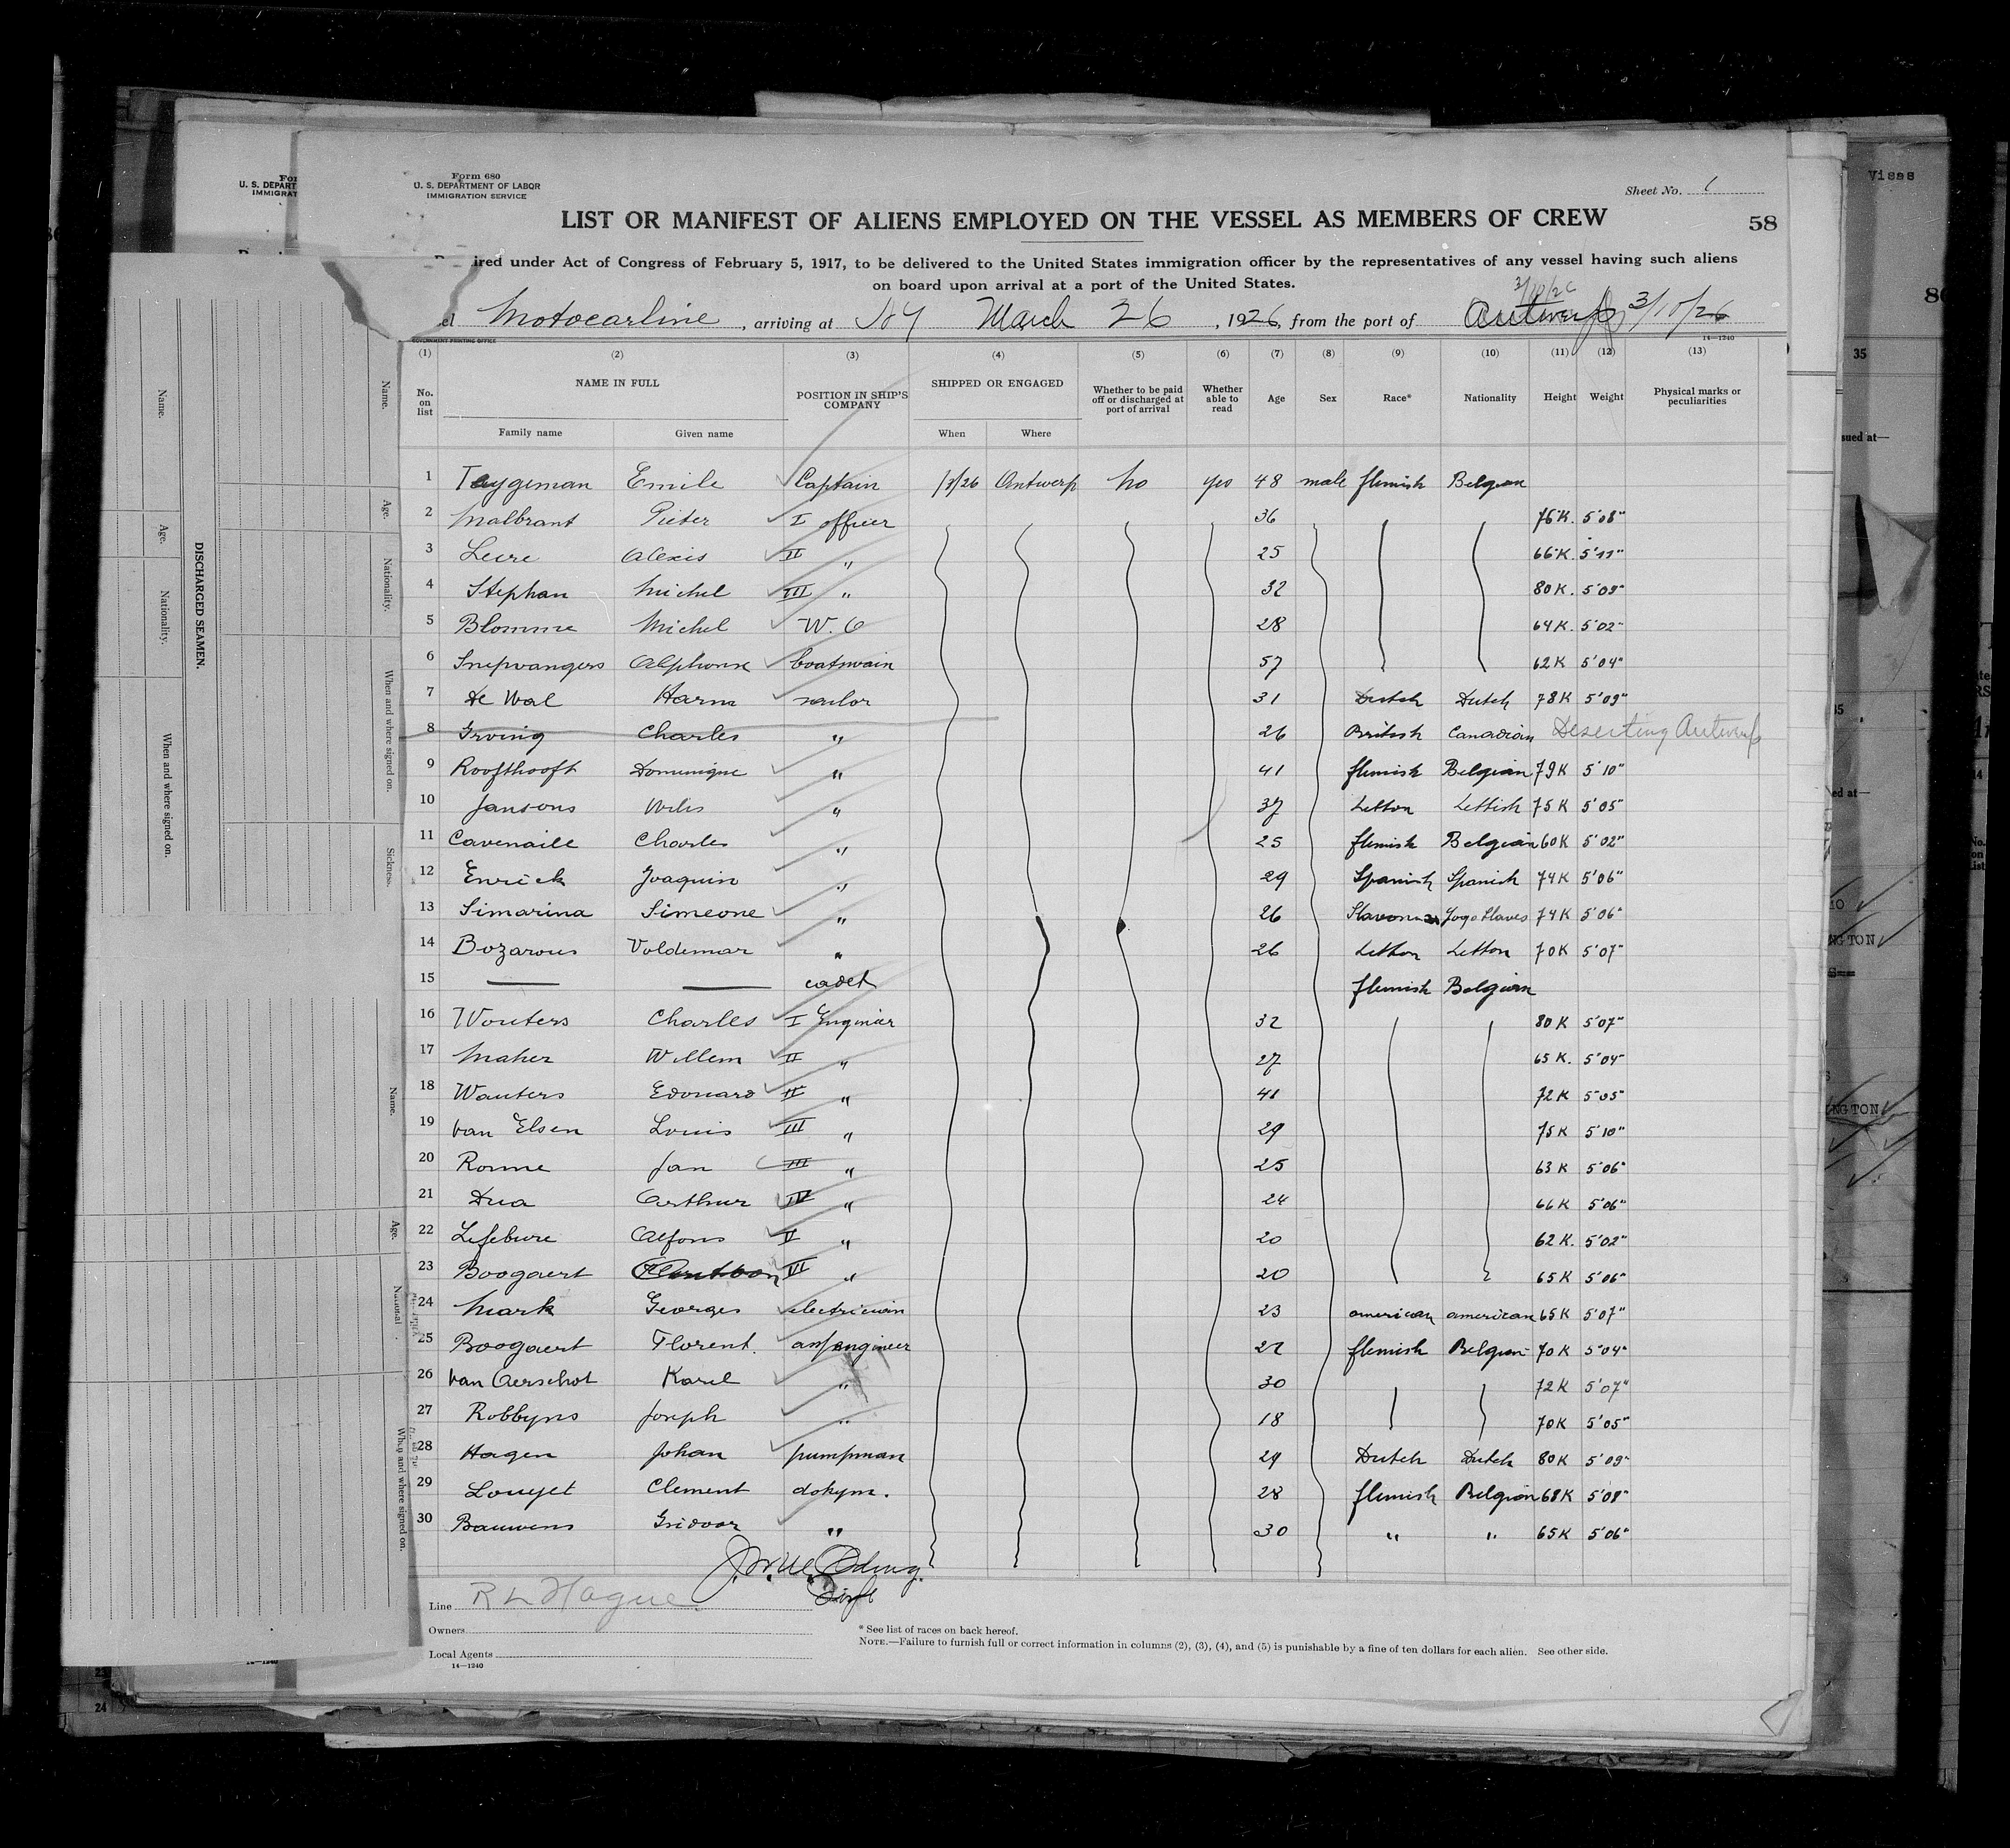 Form 680
U. S. DEPARTMENT OF LABOR
IMMIGRATION SERVICE
Sheet No. 1
Visas
LIST OR MANIFEST OF ALIENS EMPLOYED ON THE VESSEL AS MEMBERS OF CREW
58
Required under Act of Congress of February 5, 1917, to be delivered to the United States immigration officer by the representatives of any vessel having such aliens
on board upon arrival at a port of the United States.
3/10/26
Motocarline, arriving at NY March 26, 1926, from the port of Antwerp 3/10/26
GOVERNMENT PRINTING OFFICE
14—1240
(1) (2) (3) (4) (5) (6) (7) (8) (9) (10) (11) (12) (13)
No. on list NAME IN FULL Family name Given name POSITION IN SHIP'S COMPANY SHIPPED OR ENGAGED When Where Whether to be paid off or discharged at port of arrival Whether able to read Age Sex Race* Nationality Height Weight Physical marks or peculiarities
1 Taygeman Emile Captain 1/3/26 Antwerp no yes 48 male flemish Belgian
2 Malbrant Pieter I officer 36 76 K. 5'08"
3 Leire Alexis II " 25 66 K. 5'11"
4 Stephan Michel III " 32 80 K. 5'09"
5 Blomme Michel W. O 28 64 K. 5'02"
6 Snepvangers Alphonse boatswain 57 62 K 5'04"
7 De Wal Harm sailor 31 Dutch Dutch 78 K 5'09"
8 Irving Charles " 26 British Canadian Deserting Antwerp
9 Roofthooft Dominique " 41 flemish Belgian 79 K 5'10"
10 Jansons Wilis " 37 Letton Lettish 75 K 5'05"
11 Cavenaile Charles " 25 flemish Belgian 60 K 5'02"
12 Enrick Joaquin " 29 Spanish Spanish 74 K 5'06"
13 Simarina Simeone " 26 Yogo Slaves 74 K 5'06"
14 Bozarous Voldemar " 26 Letton Letton 70 K 5'07"
15 — — cadet flemish Belgian
16 Wouters Charles I Engineer 32 80 K 5'07"
17 Maher Willem II " 27 65 K. 5'04"
18 Wauters Edouard II " 41 72 K 5'05"
19 Van Elsen Louis III " 29 75 K 5'10"
20 Ronne Jan III " 25 63 K 5'06"
21 Dua Arthur IV " 24 66 K 5'06"
22 Lefebure Alfons V " 20 62 K. 5'02"
23 Boogaert VI " 20 65 K 5'06"
24 Mark Georges electrician 23 american american 65 K 5'07"
25 Boogaert Florent. ass/engineer 22 flemish Belgian 70 K 5'04"
26 Van Aerschot Karel " 30 72 K 5'07"
27 Robbyns Joseph " 18 70 K 5'05"
28 Hagen Johan pumpman 29 Dutch Dutch 80 K 5'09"
29 Louyet Clement dokym. 28 flemish Belgian 68 K 5'08"
30 Bauwens Isidoor " 30 " " 65 K 5'06"
Line R L Hague
Owners
Local Agents
14—1240
* See list of races on back hereof.
NOTE.—Failure to furnish full or correct information in columns (2), (3), (4), and (5) is punishable by a fine of ten dollars for each alien. See other side.
DISCHARGED SEAMEN.
Name.
Age.
Nationality.
When and where signed on.
Name.
Age.
Nationality.
When and where signed on.
Sickness.
Name.
Age.
When and where signed on.
35
24